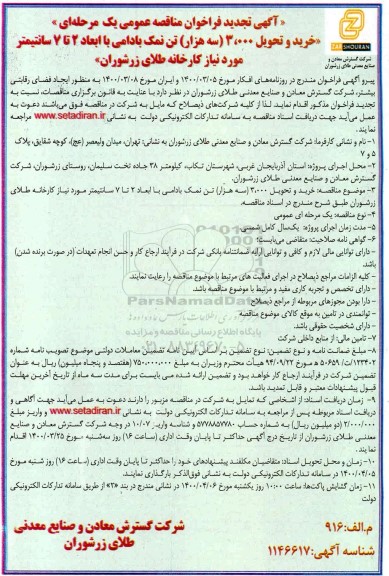 شرکت گسترش معادن و
صنایع معدنی طلای زرشوران
ZARSHOURAN
« آگهی تجدید فراخوان مناقصه عمومی یک مرحله‌ای »
«خرید و تحویل ۳،۰۰۰ (سه هزار) تن نمک بادامی با ابعاد ۲ تا ۷ سانتیمتر
مورد نیاز کارخانه طلای زرشوران»
پیرو آگهی فراخوان مندرج در روزنامه‌های افکار مورخ ۱۴۰۰/۰۳/۰۵ و ایران مورخ ۱۴۰۰/۰۳/۰۸ به منظور ایجاد فضای رقابتی
بیشتر، شرکت گسترش معادن و صنایع معدنی طلای زرشوران در نظر دارد با عنایت به قانون برگزاری مناقصات، نسبت به
تجدید فراخوان مذکور اقدام نماید. لذا از کلیه شرکت‌های ذیصلاح که مایل به شرکت در مناقصه فوق می‌باشند دعوت به
عمل می‌آید جهت دریافت اسناد مناقصه به سامانه تدارکات الکترونیکی دولت به نشانی www.setadiran.ir مراجعه
نمایند.
۱- نام و نشانی کارفرما: شرکت گسترش معادن و صنایع معدنی طلای زرشوران به نشانی: تهران، میدان ولیعصر (عج)، کوچه شقایق، پلاک
۵ و ۷
۲- محل اجرای پروژه: استان آذربایجان غربی، شهرستان تکاب، کیلومتر ۳۸ جاده تخت سلیمان، روستای زرشوران، شرکت
گسترش معادن و صنایع معدنی طلای زرشوران.
۳- موضوع مناقصه: خرید و تحویل ۳،۰۰۰ (سه هزار) تن نمک بادامی با ابعاد ۲ تا ۷ سانتیمتر مورد نیاز کارخانه طلای
زرشوران طبق شرح مندرج در اسناد مناقصه.
۴- نوع مناقصه: یک مرحله ای عمومی
۵- مدت زمان اجرای پروژه: یک‌سال کامل‌شمسی.
۶- گواهی نامه صلاحیت: متقاضی می‌بایست؛
- دارای توانایی مالی لازم و کافی و توانایی ارائه ضمانتنامه بانکی شرکت در فرآیند ارجاع کار و حسن انجام تعهدات (در صورت برنده شدن)
باشد.
- کلیه الزامات مراجع ذیصلاح در اجرای فعالیت های مرتبط با موضوع مناقصه را رعایت نمایند.
- دارای تخصص و تجربه کاری مفید و مرتبط با موضوع مناقصه باشد.
- دارا بودن مجوزهای مربوطه از مراجع ذیصلاح
- توانمندی در تامین به موقع کالای موضوع مناقصه
- دارای شخصیت حقوقی باشد.
۷- تامین مالی: از منابع داخلی شرکت
۸- مبلغ ضمانت نامه و نوع تضمین: نوع تضمین بر اساس آیین نامه تضمین معاملات دولتی موضوع تصویب نامه شماره
۱۲۳۴۰۲/ت ۵۰۶۵۹ ه مورخ ۹۴/۰۹/۲۲ هیأت محترم وزیران به مبلغ ۷۵۰،۰۰۰،۰۰۰ (هفتصد و پنجاه میلیون) ریال به عنوان
تضمین شرکت در فرآیند ارجاع کار خواهد بود و تضمین ارائه شده می بایست برای مدت سه ماه از تاریخ آخرین مهلت
قبول پیشنهادات معتبر و قابل تمدید باشد.
۹- زمان دریافت اسناد: از اشخاصی که تمایل به شرکت در مناقصه مزبور را دارند دعوت به عمل می‌آید جهت آگاهی و
دریافت اسناد مربوطه پس از مراجعه به سامانه تدارکات الکترونیکی دولت به نشانی www.setadiran.ir و واریز مبلغ
۲/۰۰۰/۰۰۰ (دو میلیون ریال) به حساب شماره ۵۷۷۸۸۵۷۸۰ و شناسه واریز ۱۰/۰۷ در وجه شرکت گسترش معادن و صنایع
معدنی طلای زرشوران از تاریخ درج آگهی حداکثر تا پایان وقت اداری (ساعت ۱۶) روز سه‌شنبه مورخ ۱۴۰۰/۰۳/۲۵ اقدام
نمایند.
۱۰- زمان و محل تحویل اسناد: متقاضیان مکلفند پیشنهادهای خود را حداکثر تا پایان وقت اداری (ساعت ۱۶) روز شنبه مورخ
۱۴۰۰/۰۴/۰۵ در سامانه تدارکات الکترونیکی دولت به نشانی فوق‌الذکر بارگذاری نمایند.
۱۱- زمان گشایش پاکت‌ها: ساعت ۱۰:۰۰ روز یکشنبه مورخ ۱۴۰۰/۰۴/۰۶ در نشانی مندرج در بند «۲» از طریق سامانه تدارکات الکترونیکی
دولت
م.الف: ۹۱۶
شناسه آگهی: ۱۱۴۶۶۱۷
شرکت گسترش معادن و صنایع معدنی
طلای زرشوران